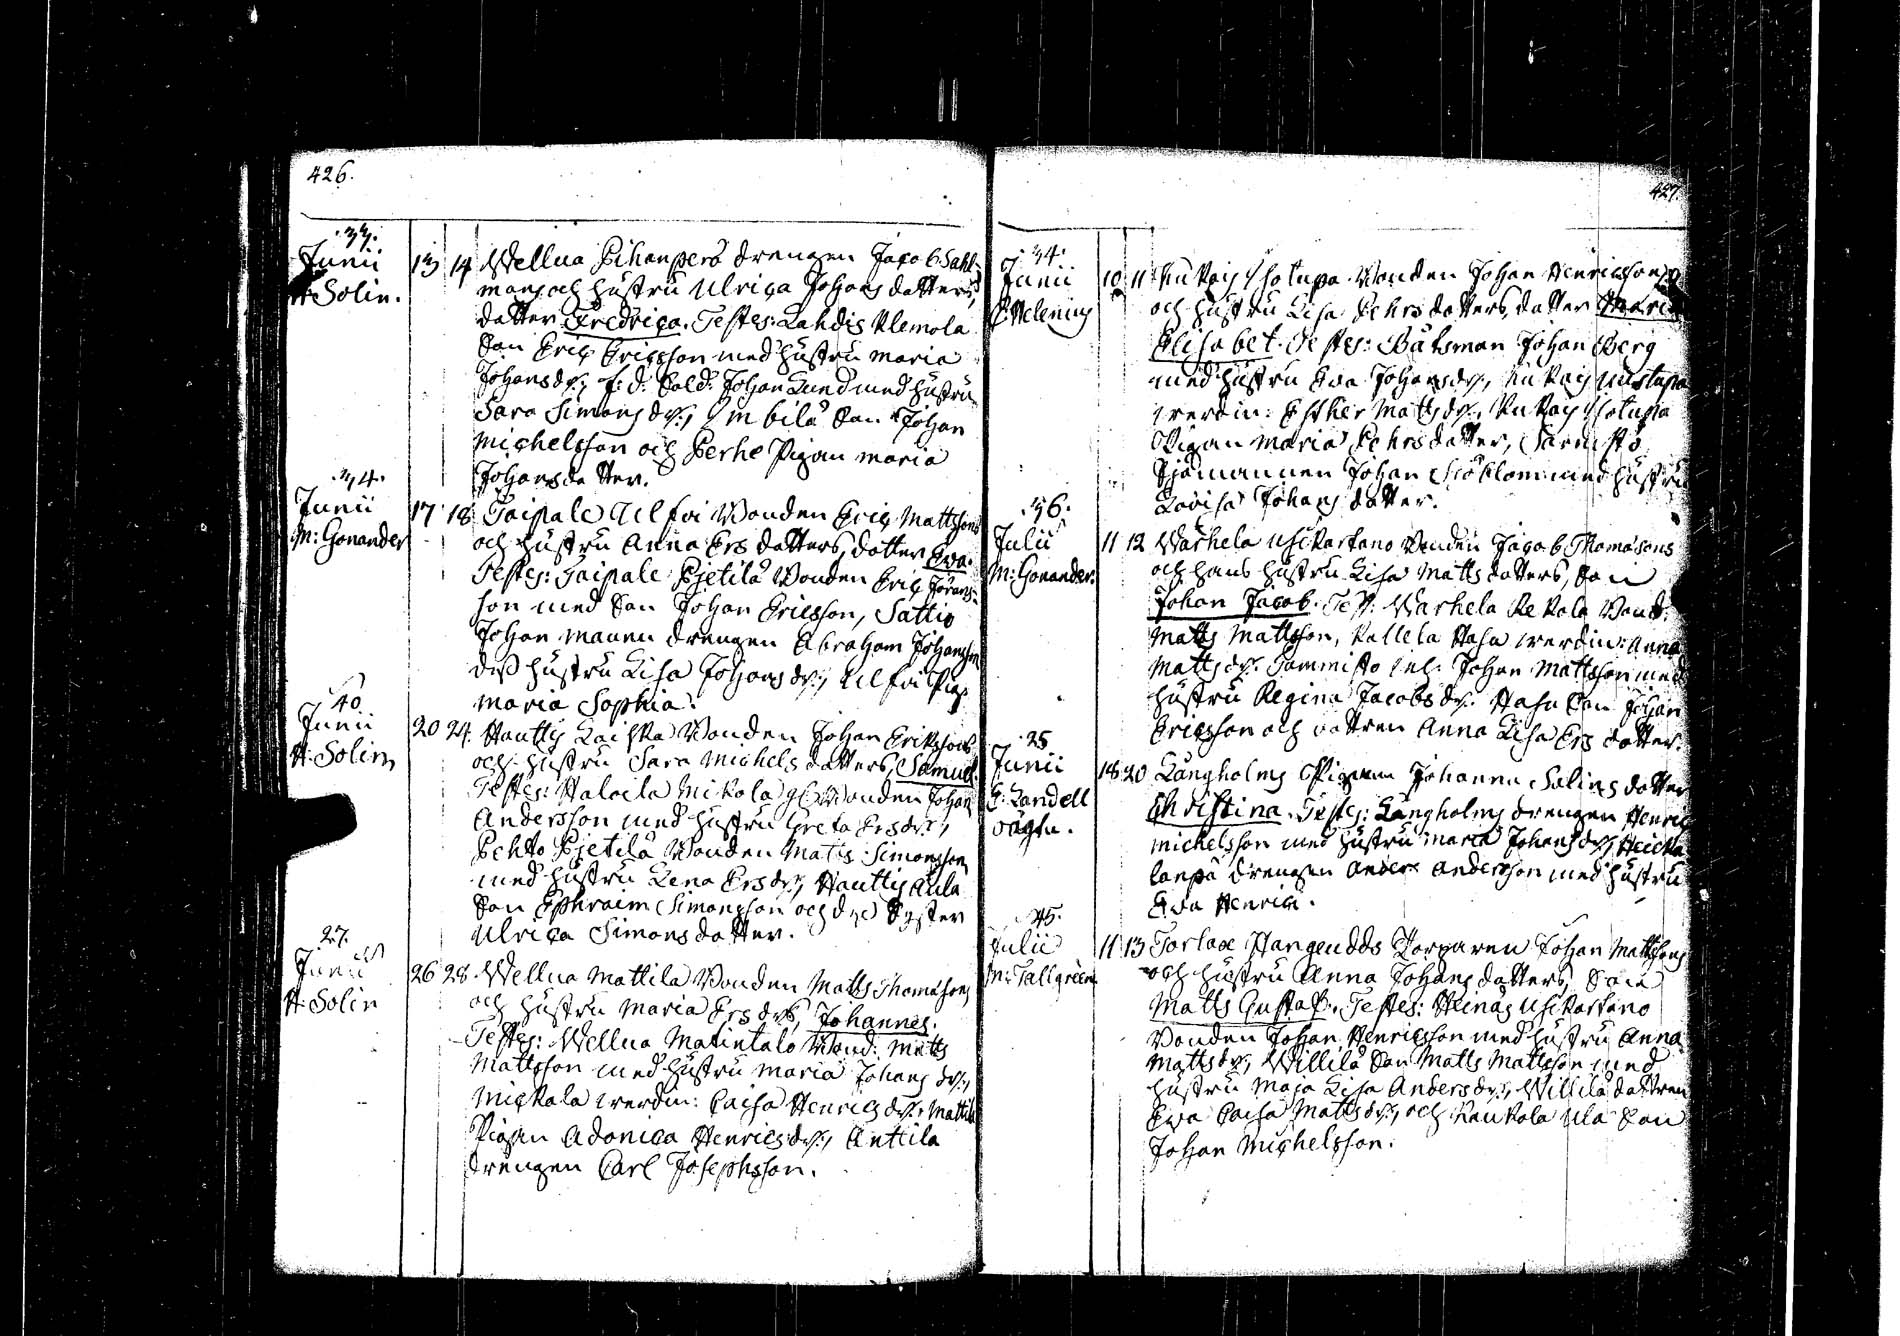 426.
33.
Junii
H: Solin.
13 14 Wellua Pihanperä drengen Jacob Sahl-
mans och hustru Ulrica Johansdatters,
datter Fredrica. Testes: Lahdis Klemola
Son Eric Ericsson med hustru Maria
Johansdr, f. d. Sold: Johan Lund med hustru
Sara Simonsdr, Ambilä Son Johan
Michelsson och Perhe Pigan Maria
Johansdatter.
34.
Junii
M: Gonander
17 18 Taipale Ulfvi Bonden Eric Mattssons
och hustru Anna Ersdatters, datter Eva.
Testes: Taipale Pjetilä Bonden Eric Jörans-
son med Son Johan Ericsson, Sattio
Johan Maunu drengen Abraham Johansson
dess hustru Lisa Johansdr, Ulfvi Pig:
Maria Sophia.
40.
Junii
H: Solin
20 24 Hauttis Laiska Bonden Johan Erikssons
och hustru Sara Michelsdatters, Samuel.
Testes: Haloila Mickola Bonden Johan
Andersson med hustru Greta Ersdr,
Pehto Pjetilä Bonden Matts Simonsson
med hustru Lena Ersdr, Hauttis Aula
Son Ephraim Simonsson och Syster
Ulrica Simonsdatter.
27.
Junii
H: Solin
26 28 Wellua Mattila Bonden Matts Thomassons
och hustru Maria Ersdrs, Johannes.
Testes: Wellua Matintalo Bond: Matts
Mattsson med hustru Maria Johansdr,
Mickala werdin: Caisa Henricsdr, Mattila
Pigan Adonica Henricsdr, Anttila
drengen Carl Josephsson.
427.
34.
Junii
C Helenius
10 11 Isotupa Bonden Johan Henricssons
och hustru Lisa Pehrsdatters, datter Maria
Elisabet. Testes: Båtsman Johan Berg
med hustru Eva Johansdr, Uustupa
werdin: Esther Mattsdr, Isotupa
Pigan Maria Pehrsdatter, Sarmisto
Sjömannen Johan Sjöblom med hustru
Lovisa Johansdatter.
36.
Julii
M: Gonander.
11 12 Warhela Usikartano Bonden Jacob Thomasons
och hans hustru Lisa Mattsdatters, Son
Johan Jacob. Test: Warhela Rekola Bond:
Matts Mattsson, Kallela Hasa werdin: Anna
Mattsdr. Tammisto Johan Mattsson med
hustru Regina Jacobsdr. Hasa Son Johan
Ericsson och dattren Anna Lisa Ersdatter.
25
Junii
E: Landell
oägta.
18 20 Långholms Pigan Johanna Salins datter
Christina. Testes: Långholms drengen Henric
Michelsson med hustru Maria Johansdr, Heicka
lanpä drengen Anders Andersson med hustru
Eva Henric.
45.
Julii
M: Tallgreen
11 13 Torlax Hangeudds Torparen Johan Mattssons
och hustru Anna Johansdatters, Son
Matts Gustaf. Testes: Heinäs Usikartano
Bonden Johan Henricsson med hustru Anna
Mattsdr, Willilä Son Matts Mattsson med
hustru Maja Lisa Andersdr, Willilä dattren
Eva Caisa Mattsdr, och Kaukola Ula Son
Johan Michelsson.